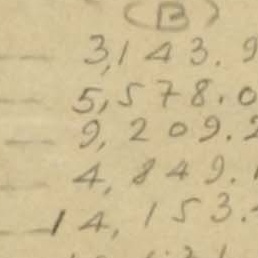 (B)
3,143.9
5,578.0
9,209.2
4,849.1
14,153.